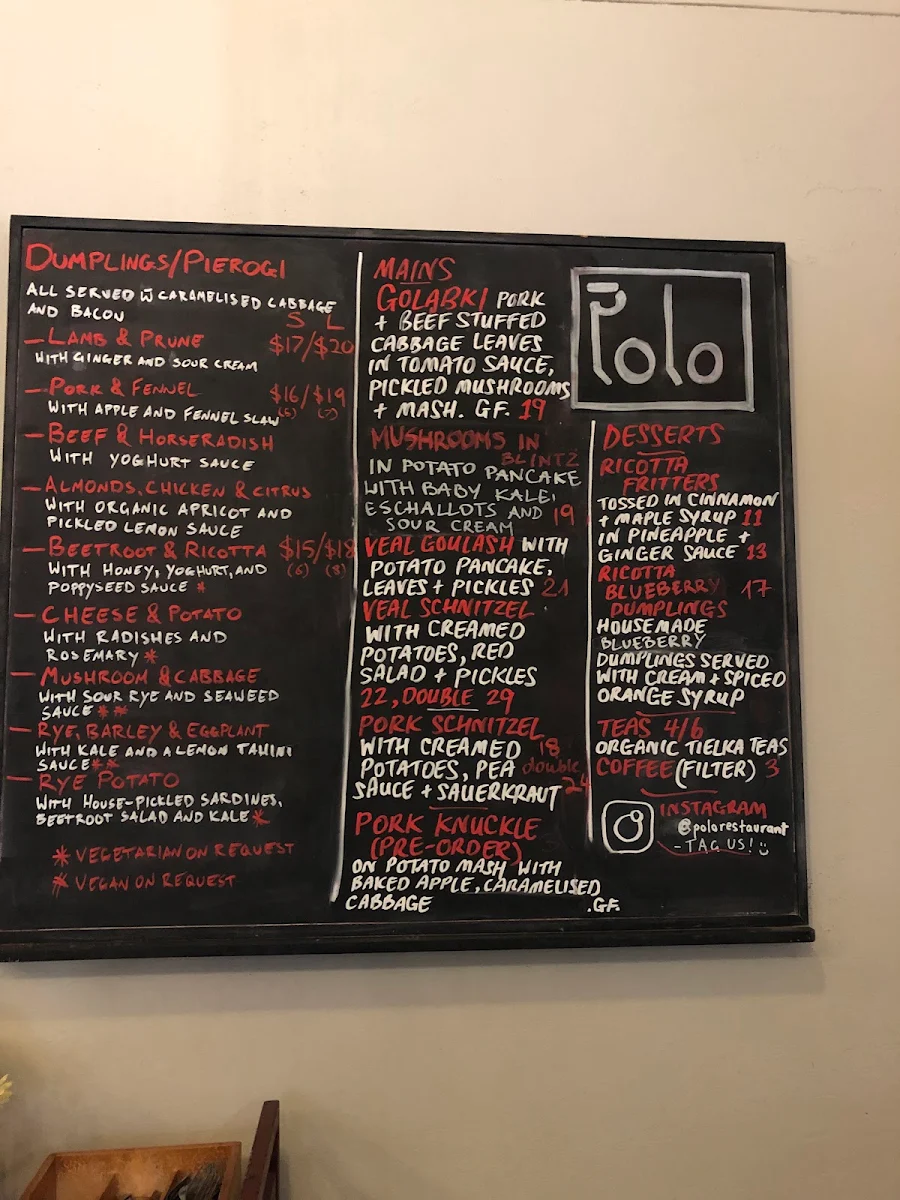 DUMPLINGS/PIEROGI
ALL SERVED W̄ CARAMELISED CABBAGE
AND BACON
S L
– LAMB & PRUNE $17/$20
WITH GINGER AND SOUR CREAM
– PORK & FENNEL $16/$19
WITH APPLE AND FENNEL SLAW
– BEEF & HORSERADISH
WITH YOGHURT SAUCE
– ALMONDS, CHICKEN & CITRUS
WITH ORGANIC APRICOT AND
PICKLED LEMON SAUCE
– BEETROOT & RICOTTA $15/$18
WITH HONEY, YOGHURT, AND (6) (8)
POPPYSEED SAUCE *
– CHEESE & POTATO
WITH RADISHES AND
ROSEMARY *
– MUSHROOM & CABBAGE
WITH SOUR RYE AND SEAWEED
SAUCE **
– RYE, BARLEY & EGGPLANT
WITH KALE AND A LEMON TAHINI
SAUCE **
– RYE POTATO
WITH HOUSE-PICKLED SARDINES,
BEETROOT SALAD AND KALE *
* VEGETARIAN ON REQUEST
* VEGAN ON REQUEST
MAINS
GOLABKI PORK
+ BEEF STUFFED
CABBAGE LEAVES
IN TOMATO SAUCE,
PICKLED MUSHROOMS
+ MASH. GF. 19
MUSHROOMS IN
BLINTZ
IN POTATO PANCAKE
WITH BABY KALE,
ESCHALLOTS AND 19
SOUR CREAM
VEAL GOULASH WITH
POTATO PANCAKE,
LEAVES + PICKLES 21
VEAL SCHNITZEL
WITH CREAMED
POTATOES, RED
SALAD + PICKLES
22, DOUBLE 29
PORK SCHNITZEL
WITH CREAMED 18
POTATOES, PEA double
SAUCE + SAUERKRAUT 24
PORK KNUCKLE
(PRE-ORDER)
ON POTATO MASH WITH
BAKED APPLE, CARAMELISED
CABBAGE .GF.
Polo
DESSERTS
RICOTTA
FRITTERS
TOSSED IN CINNAMON
+ MAPLE SYRUP 11
IN PINEAPPLE +
GINGER SAUCE 13
RICOTTA
BLUEBERRY 17
DUMPLINGS
HOUSEMADE
BLUEBERRY
DUMPLINGS SERVED
WITH CREAM + SPICED
ORANGE SYRUP
TEAS 4/6
ORGANIC TIELKA TEAS
COFFEE (FILTER) 3
INSTAGRAM
@polorestaurant
- TAG US! :)